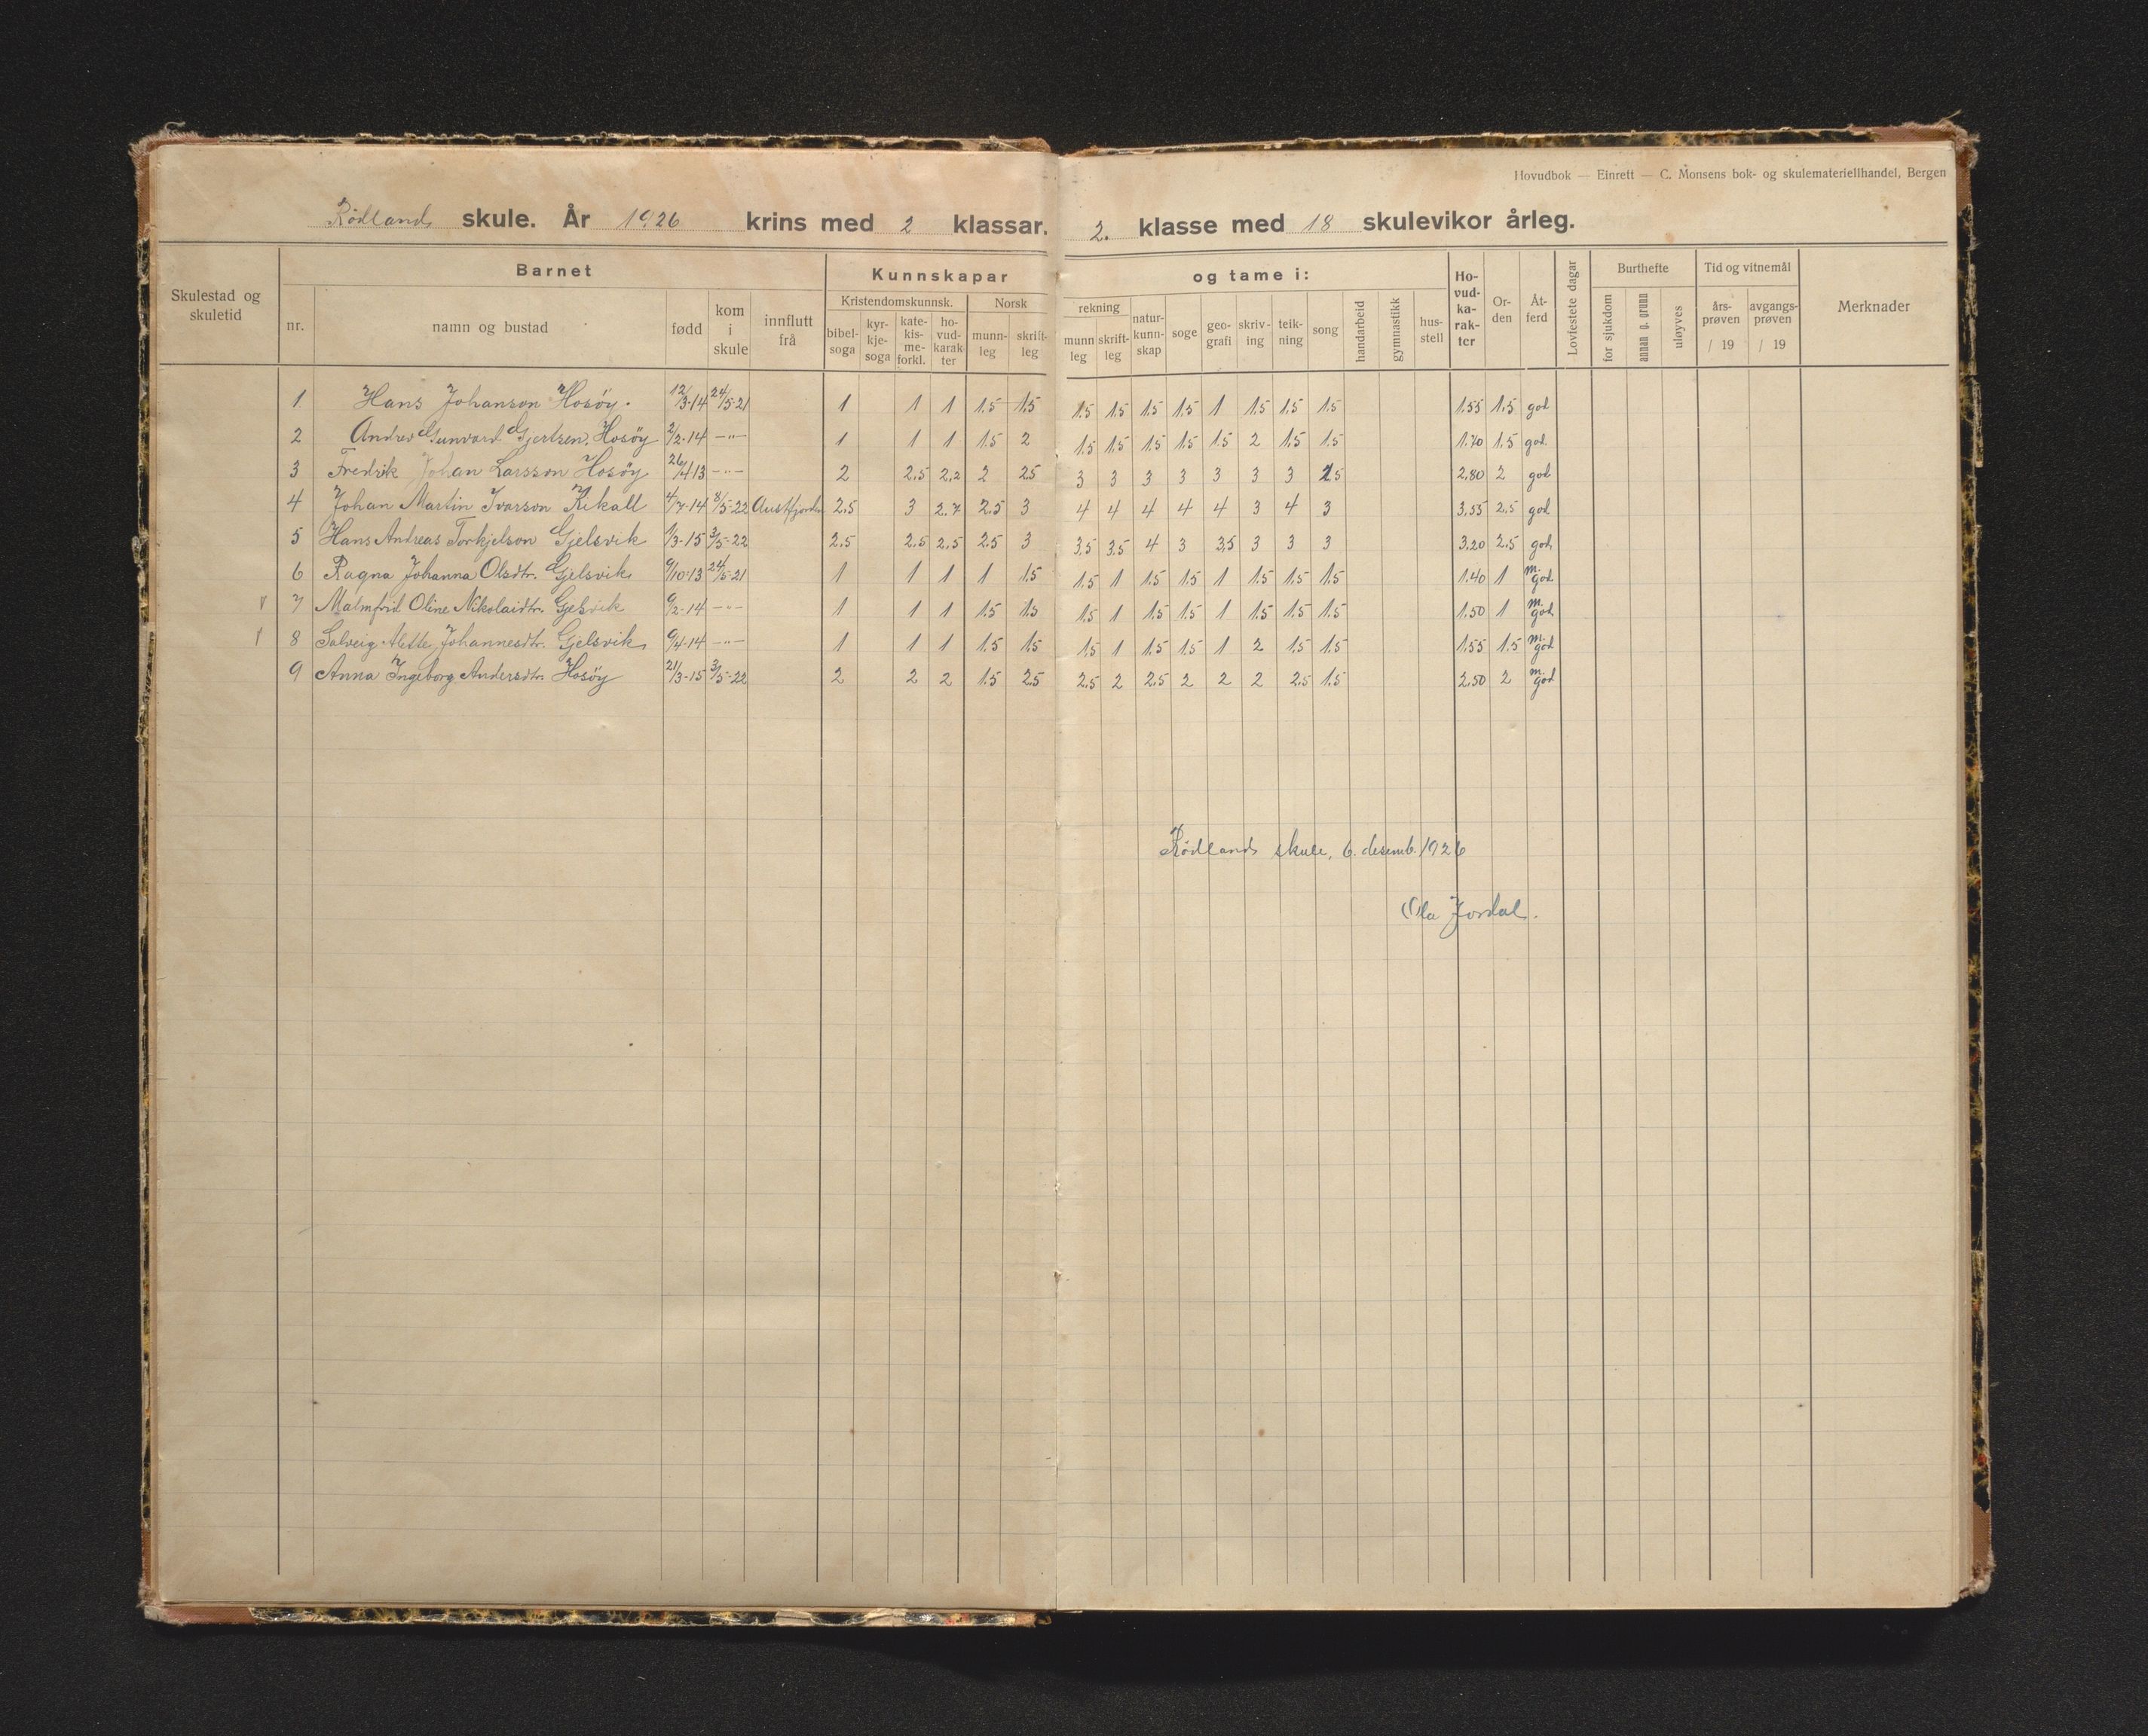 Hovudbok — Einrett — C. Monsens bok- og skulemateriellhandel, Bergen
Rödlands skule. År 1926 krins med 2 klassar. 2. klasse med 18 skulevikor årleg.
Skulestad og skuletid
Barnet
nr. namn og bustad fødd kom i skule innflutt frå
Kunnskapar og tame i:
Kristendomskunnsk. Norsk rekning
bibel-soga kyr-kje-soga kate-kis-me-forkl. ho-vud-karak-ter munn-leg skrift-leg munn leg skrift-leg natur-kunn-skap soge geo-grafi skriv-ing teik-ning song handarbeid gymnastikk hus-stell
Ho-vud-ka-rak-ter Or-den Åt-ferd Lovfestete dagar
Burthefte for sjukdom annan g. grunn uløyves
Tid og vitnemål års-prøven / 19 avgangs-prøven / 19
Merknader
1 Hans Johanson Hosöy. 12/3-14 24/5-21 1 1 1 1.5 1.5 1.5 1.5 1.5 1.5 1 1.5 1.5 1.5 1.55 1.5 god
2 Andrev Gunvard Gjertsen, Hosöy 2/2-14 -"- 1 1 1 1.5 2 1.5 1.5 1.5 1.5 1.5 2 1.5 1.5 1.70 1.5 god
3 Fredrik Johan Larsson Hosöy 26/4-13 -"- 2 2.5 2.2 2 2.5 3 3 3 3 3 3 3 2.5 2.80 2 god
4 Johan Martin Ivarson 4/7-14 8/5-22 Austfjorden 2.5 3 2.7 2.5 3 4 4 4 4 4 3 4 3 3.55 2.5 god
5 Hans Andreas Torkjelson Gjelsvik 1/3-15 3/5-22 2.5 2.5 2.5 2.5 3 3.5 3.5 4 3 3.5 3 3 3 3.20 2.5 god
6 Ragna Johanna Olsdtr. Gjelsvik 9/10-13 24/5-21 1 1 1 1 1.5 1.5 1 1.5 1.5 1 1.5 1.5 1.5 1.40 1 m. god
7 Malmfrid Oline Nikolaidtr. Gjelsvik 9/2-14 -"- 1 1 1 1.5 1.5 1.5 1 1.5 1.5 1 1.5 1.5 1.5 1.50 1 m. god
8 Solveig Alette Johannesdtr. Gjelsvik 9/4-14 -"- 1 1 1 1.5 1.5 1.5 1 1.5 1.5 1 2 1.5 1.5 1.55 1.5 m. god
9 Anna Ingeborg Andersdtr. Hosöy 21/3-15 3/5-22 2 2 2 1.5 2.5 2.5 2 2.5 2 2 2 2.5 1.5 2.50 2 m. god
Rödlands skule, 6. desemb. 1926
Ola Jordal.